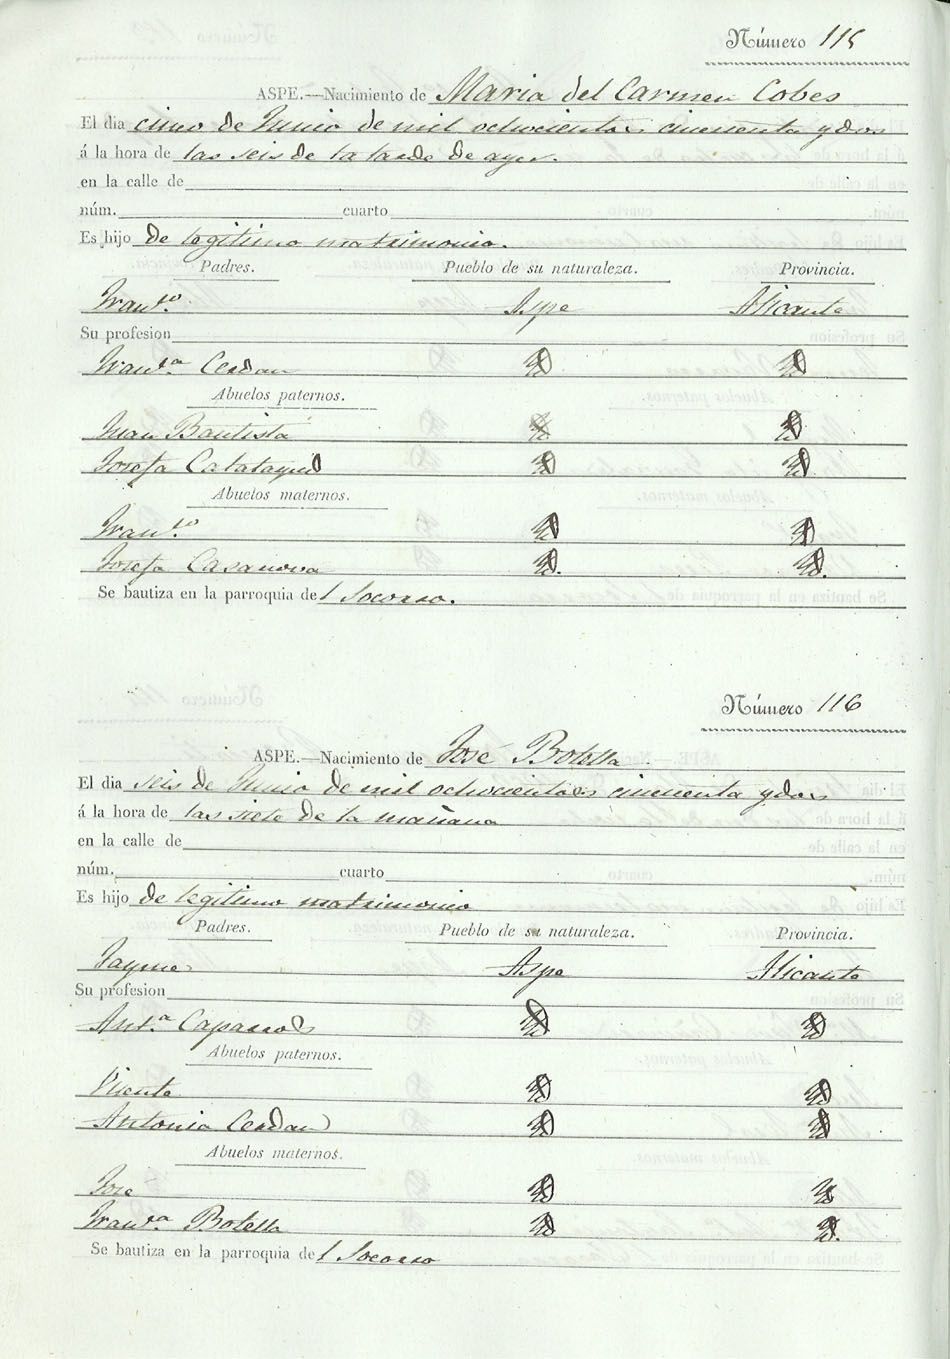 Número 115
ASPE.—Nacimiento de Maria del Carmen Cobes
El dia cinco de Junio de mil ochocientos cincuenta y dos
á la hora de las seis de la tarde de ayer.
en la calle de
núm. cuarto
Es hijo de legitimo matrimonio.
Padres. Pueblo de su naturaleza. Provincia.
Franco. Aspe Alicante
Su profesion
Franca. Cerdan Yd Yd
Abuelos paternos.
Juan Bautista Yd Yd
Josefa Calatayud Yd Yd
Abuelos maternos.
Franco. Yd Yd
Josefa Casanova Yd. Yd.
Se bautiza en la parroquia del Socorro.
Número 116
ASPE.—Nacimiento de José Botella
El dia seis de Junio de mil ochocientos cincuenta y dos
á la hora de las siete de la mañana
en la calle de
núm. cuarto
Es hijo de legitimo matrimonio
Padres. Pueblo de su naturaleza. Provincia.
Jayme Aspe Alicante
Su profesion
Anta. Caparros Yd Yd
Abuelos paternos.
Vicente Yd Yd
Antonia Cerdan Yd Yd
Abuelos maternos.
Jose Yd Yd
Franca. Botella Yd Yd.
Se bautiza en la parroquia del Socorro